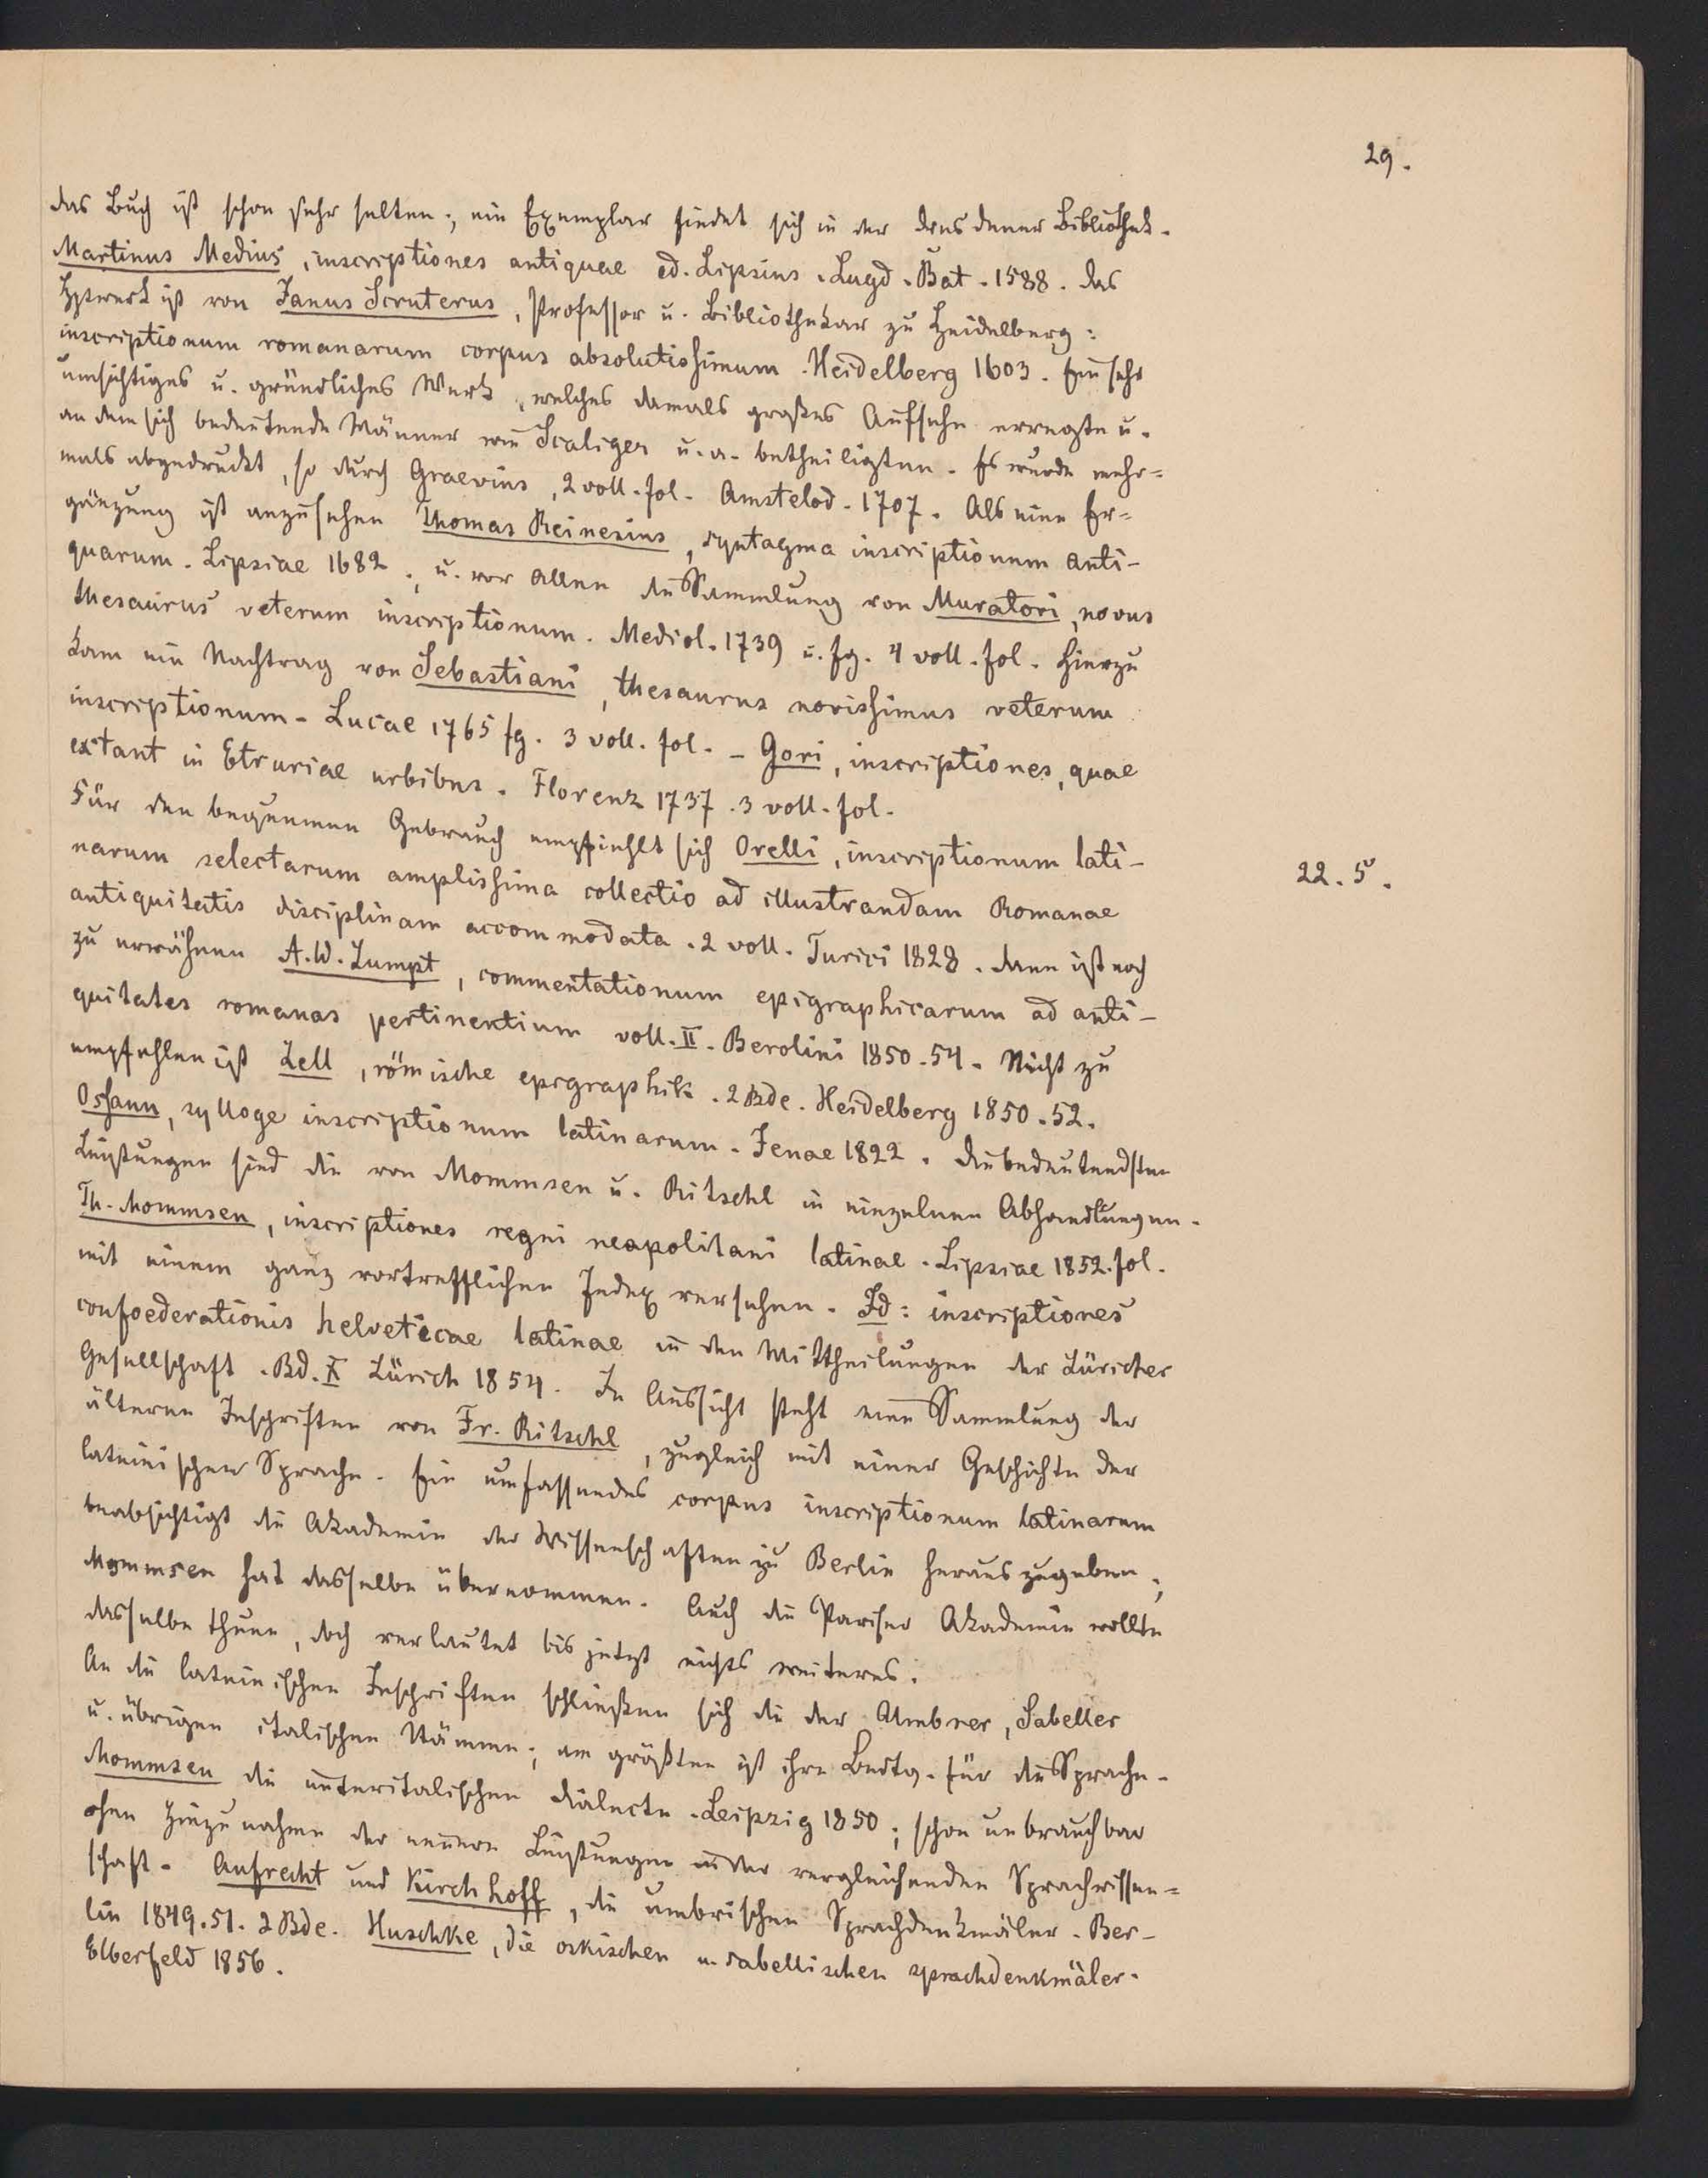 29.
das Buch ist schon sehr selten; ein Exemplar findet sich in der dresdener Bibliothek.
Martinus Medius, inscriptiones antiquae ed. Lipsius. Lugd. Bat. 1588. das
Hptwerk ist von Janus Scruterus, Professor u. Bibliothekar zu Heidelberg:
inscriptionum romanarum corpus absolutissimum. Heidelberg 1603. Ein sehr
umsichtiges u. gründliches Werk, welches damals großes Aufsehn erregte u.
an dem sich bedeutende Männer wie Scaliger u. a. betheiligten. Es wurde mehr=
mals abgedruckt, so durch Graevius, 2 voll. fol. Amstelod. 1707. Als eine Er=
gänzung ist anzusehen Thomas Reinesius, syntagma inscriptionum anti-
quarum. Lipsiae 1682.; u. vor Allen die Sammlung von Muratori, novus
thesaurus veterum inscriptionum. Mediol. 1739 u. fg. 4 voll. fol. Hierzu
kam ein Nachtrag von Sebastiani, thesaurus novissimus veterum
inscriptionum. Lucae 1765 fg. 3 voll. fol. – Gori, inscriptiones, quae
extant in Etruriae urbibus. Florenz 1737. 3 voll. fol.
Für den bequemen Gebrauch empfiehlt sich Orelli, inscriptionum lati-
22. 5.
narum selectarum amplissima collectio ad illustrandam Romanae
antiquitatis disciplinam accommodata. 2 voll. Turici 1828. dann ist noch
zu erwähnen A. W. Zumpt, commentationum epigraphicarum ad anti-
quitates romanas pertinentium voll. II. Berolini 1850. 54. Nicht zu
empfehlen ist Zell, römische epigraphik. 2 Bde. Heidelberg 1850. 52.
Osann, sylloge inscriptionum latinarum. Jenae 1822. die bedeutendsten
Leistungen sind die von Mommsen u. Ritschl in einzelnen Abhandlungen.
Th. Mommsen, inscriptiones regni neapolitani latinae. Lipsiae 1852. fol.
mit einem ganz vortrefflichen Index versehen. Id: inscriptiones
confoederationis helveticae latinae in den Mittheilungen der Züricher
Gesellschaft. Bd. X Zürich 1854. In Aussicht steht eine Sammlung der
älteren Inschriften von Fr. Ritschl, zugleich mit einer Geschichte der
lateinischen Sprache. Ein umfassendes corpus inscriptionum latinarum
beabsichtigt die Akademie der Wissenschaften zu Berlin herauszugeben;
Mommsen hat dasselbe übernommen. Auch die Pariser Akademie wollte
dasselbe thun, doch verlautet bis jetzt nichts weiteres.
An die lateinischen Inschriften schließen sich die der Umbrer, Sabeller
u. übrigen italischen Stämme; am größten ist ihre Bedtg. für die Sprache.
Mommsen die unteritalischen dialecte. Leipzig 1850; schon unbrauchbar
ohne Hinzunahme der neuern Leistungen in der vergleichenden Sprachwissen=
schaft. Aufrecht und Kirchhoff, die umbrischen Sprachdenkmäler. Ber-
lin 1849. 51. 2 Bde. Huschke, die oskischen u. sabellischen sprachdenkmäler.
Elberfeld 1856.